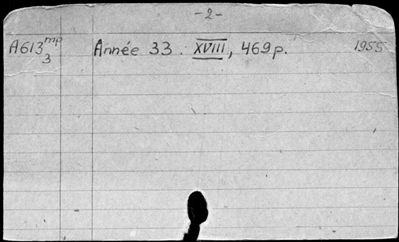 -2-
A613 mp 3 Année 33. XVIII, 469 p. 1955